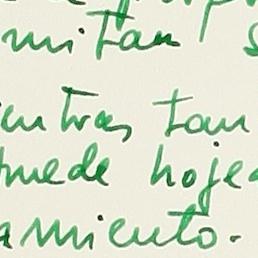 mitan
entras tan
puede hojea
amiento.